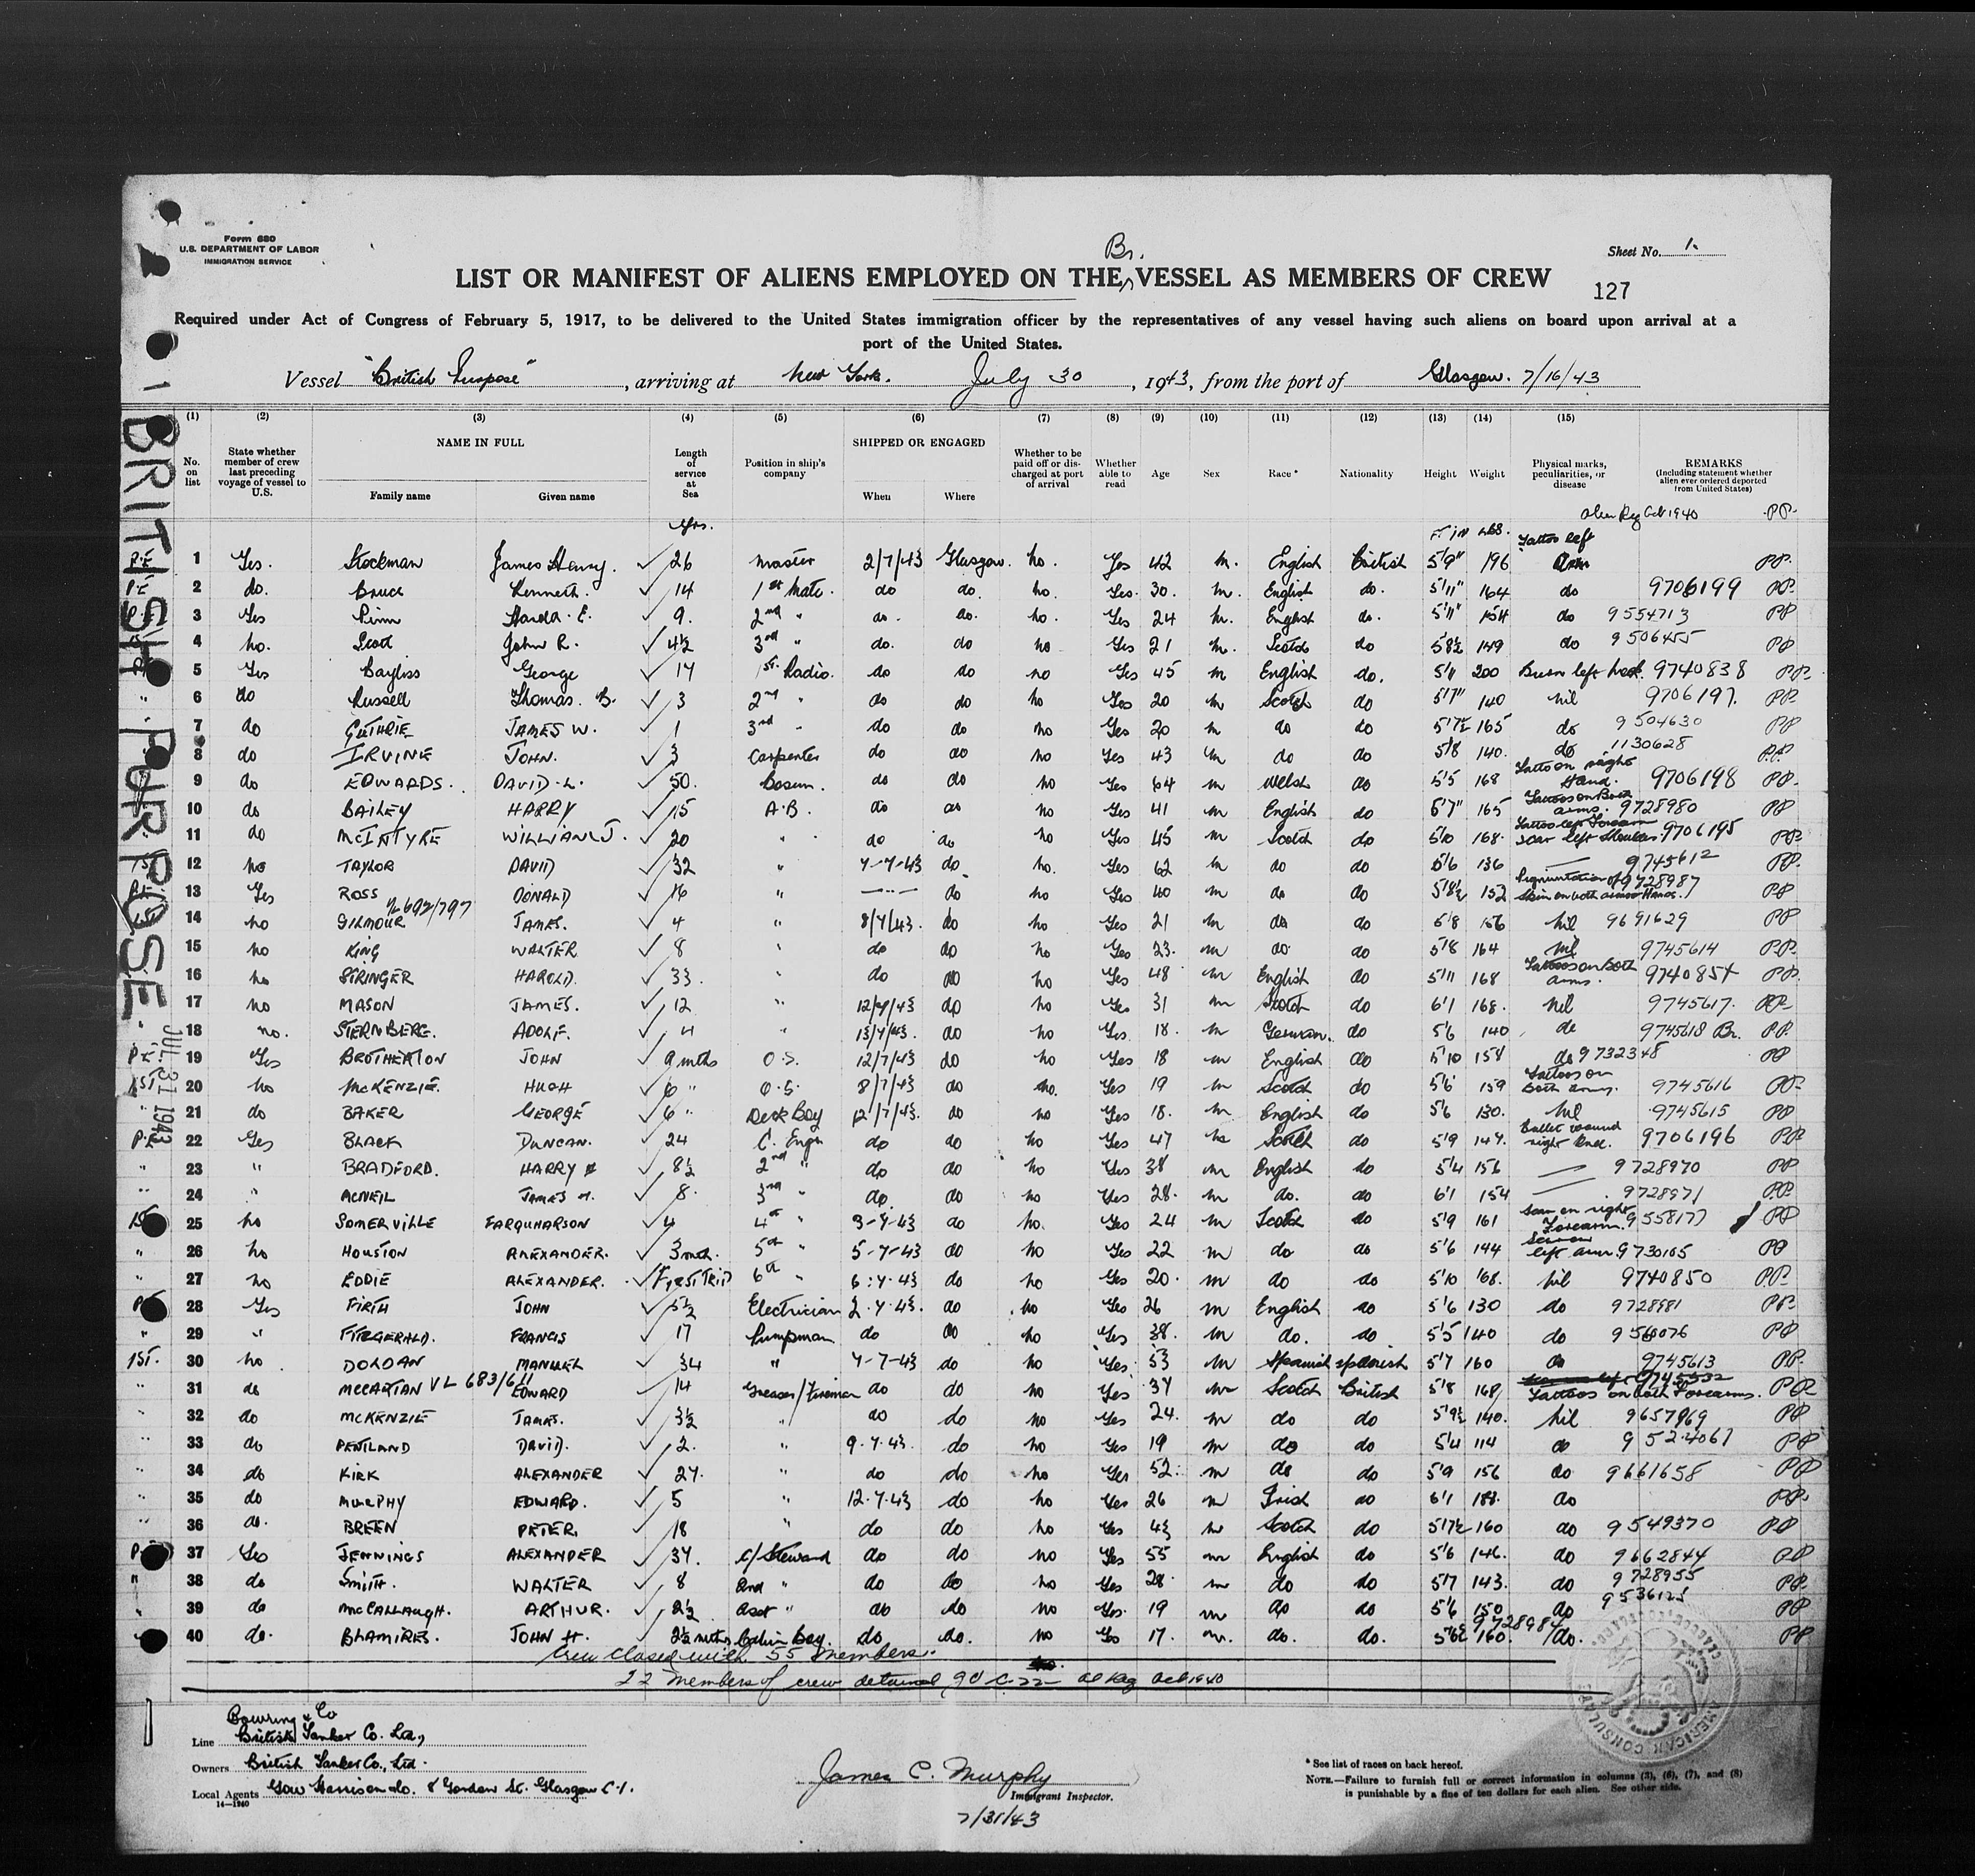 Form 680
U.S. DEPARTMENT OF LABOR
IMMIGRATION SERVICE
Sheet No. 1.
Br.
LIST OR MANIFEST OF ALIENS EMPLOYED ON THE VESSEL AS MEMBERS OF CREW
127
Required under Act of Congress of February 5, 1917, to be delivered to the United States immigration officer by the representatives of any vessel having such aliens on board upon arrival at a
port of the United States.
Vessel "British Purpose", arriving at New York. July 30, 1943, from the port of Glasgow. 7/16/43
(1) (2) (3) (4) (5) (6) (7) (8) (9) (10) (11) (12) (13) (14) (15)
No. on list State whether member of crew last preceding voyage of vessel to U.S. NAME IN FULL Family name Given name Length of service at Sea Position in ship's company SHIPPED OR ENGAGED When Where Whether to be paid off or discharged at port of arrival Whether able to read Age Sex Race* Nationality Height Weight Physical marks, peculiarities, or disease REMARKS (Including statement whether alien ever ordered deported from United States)
Yrs. Ft in lbs. Alien Reg Oct 1940 PP.
1 Yes. Stockman James Henry. 26 Master 2/7/43 Glasgow. no. Yes 42 m. English British 5'9" 196 Tattoo left Arm PP.
2 do. Bruce Kenneth. 14 1st Mate. do do no. Yes. 30. m. English do. 5'11" 164 do 9706199 PP.
3 Yes 9. 2nd " do. do. no. Yes 24 m. English do. 5'11" 154 do 9554713 PP
4 no. Scott John R. 4½ 3rd " do. do no Yes 21 m. Scotch do 5'8½ 149 do 9506455 PP
5 Yes Bayliss George 17 1st Radio. do do no Yes 45 m English do. 5'11 200 Burn left 9740838 PP.
6 do Russell Thomas. B. 3 2nd " do do no Yes 20 m Scotch do 5'7" 140 nil 9706197. PP.
7 do GUTHRIE JAMES W. 1 3rd " do do no Yes 20 m do do 5'7½ 165 do 9504630 PP
8 do IRVINE JOHN. 3 Carpenter do do no Yes 43 m do do 5'8 140. do 1130628 PP.
9 do EDWARDS. DAVID.L. 50. Bosun. do do no Yes 64 m Welsh do 5'5 168 Tattoo on right Hand. 9706198 PP.
10 do BAILEY HARRY 15 A.B. do do no Yes 41 m English do 5'7" 165 Tattoos on Both arms. 9728980 PP
11 do McINTYRE WILLIAM J. 20 " do do no Yes 45 m Scotch do 5'10 168. Tattoo left Forearm scar left shoulder. 9706195 PP.
12 no TAYLOR DAVID 32 " 7-7-43 do no. Yes 62 m do do 5'6 136 — 9745612 PP.
13 Yes ROSS DONALD 16 " do no Yes 40 m do do 5'8½ 152 Pigmentation of skin on both Hands. 9728987 PP
14 no GILMOUR VL 692/797 JAMES. 4 " 8/7/43. do no Yes 21 m do do 5'8 156 nil 9691629 PP
15 no KING WALTER 8 " do do no Yes 23. m do. do 5'8 164 nil 9745614 PP.
16 no STRINGER HAROLD. 33. " do do no Yes 48 m English do 5'11 168 Tattoos on Both arms. 9740854 PP.
17 no MASON JAMES. 12 " 12/7/43 do no Yes 31 m Scotch do 6'1 168. nil 9745617. PP.
18 no. STERNBERG. ADOLF. 4 " 13/7/43. do no Yes. 18. m German. do 5'6 140 do 9745618 Br. PP.
19 Yes BROTHERTON JOHN 9 mths O.S. 12/7/43 do no Yes 18 m English do 5'10 158 do 9732348 PP
20 no McKENZIE. HUGH 6 " O.S. 8/7/43 do no. Yes 19 m Scotch do 5'6 159 Tattoos on both arms. 9745616 PP.
21 do BAKER GEORGE 6 " Deck Boy 12/7/43. do no Yes 18. m English do 5'6 130. nil 9745615 PP
22 Yes BLACK DUNCAN. 24 C. Engr do do no Yes 47 m Scotch do 5'9 147. Bullet wound right knee. 9706196 PP
23 " BRADFORD. HARRY 8½ 2nd " do do no Yes 38 m English do 5'4 156 — 9728970 PP
24 " ACNEIL JAMES H. 8. 3rd " do. do no Yes 28. m do. do 6'1 154 — 9728971 PP.
25 no SOMERVILLE FARQUHARSON 4 4th " 3-7-43 do no. Yes 24 m Scotch do 5'9 161 Scar on right Forearm. 9558177 PP
26 no HOUSTON ALEXANDER. 3 mth. 5th " 5-7-43 do no Yes 22 m do do 5'6 144 left arm. 9730105 PP
27 no EDDIE ALEXANDER. FIRST TRIP 6th " 6.7.43 do no Yes 20. m do do 5'10 168. nil 9740850 PP.
28 Yes FIRTH JOHN 5½ Electrician 2.7.43. do no Yes 26 m English do 5'6 130 do 9728981 PP.
29 " FITZGERALD. FRANCIS 17 Pumpman do do no Yes 38. m do. do 5'5 140 do 9560076 PP
30 no DOLDAN MANUEL 34 " 7-7-43 do no Yes 53 m Spanish Spanish 5'7 160 do 9745613 PP.
31 do McCARTAN VL 683/611 EDWARD 14 Greaser/Fireman do do no Yes 37 m Scotch British 5'8 168 Tattoos on both Forearms. PP
32 do McKENZIE JAMES. 3½ " do do no Yes 24. m do do 5'9½ 140. nil 9657969 PP
33 do PENTLAND DAVID. 2. " 9.7.43. do no Yes 19 m do do 5'4 114 do 9524061 PP
34 do KIRK ALEXANDER 27. " do do no Yes 52. m do do 5'9 156 do 9661658 PP
35 do MURPHY EDWARD. 5 " 12.7.43 do no Yes 26 m Irish do 6'1 188. do PP.
36 do. BREEN PETER. 18 " do do no Yes 43 m Scotch do 5'7½ 160 do 9549370 PP
37 Yes JENNINGS ALEXANDER 37. c/Steward do do no Yes 55 m English do 5'6 146. do 9662844 PP
38 do SMITH. WALTER 8 2nd " do do no Yes 28. m do do 5'7 143. do 9728955 PP
39 do McCALLAUGH. ARTHUR. 2½ asst " do do no Yes. 19 m do do 5'6 150 do PP
40 do. BLAMIRES. JOHN H. 2½ mths Cabin Boy. do do. no Yes 17. m. do. do. 160. do. PP
Crew closed with 55 members.
22 members of crew detained
Bowring & Co
Line British Tanker Co. Ltd,
Owners British Tanker Co., Ltd.
Local Agents Gow Harrison Co. 8 Gordon St. Glasgow C.1.
14—1240
James C. Murphy
Immigrant Inspector.
7/31/43
* See list of races on back hereof.
NOTE.—Failure to furnish full or correct information in columns (3), (6), (7), and (8)
is punishable by a fine of ten dollars for each alien. See other side.
BRITISH PURPOSE.
JUL 31 1943
AMERICAN CONSULAR